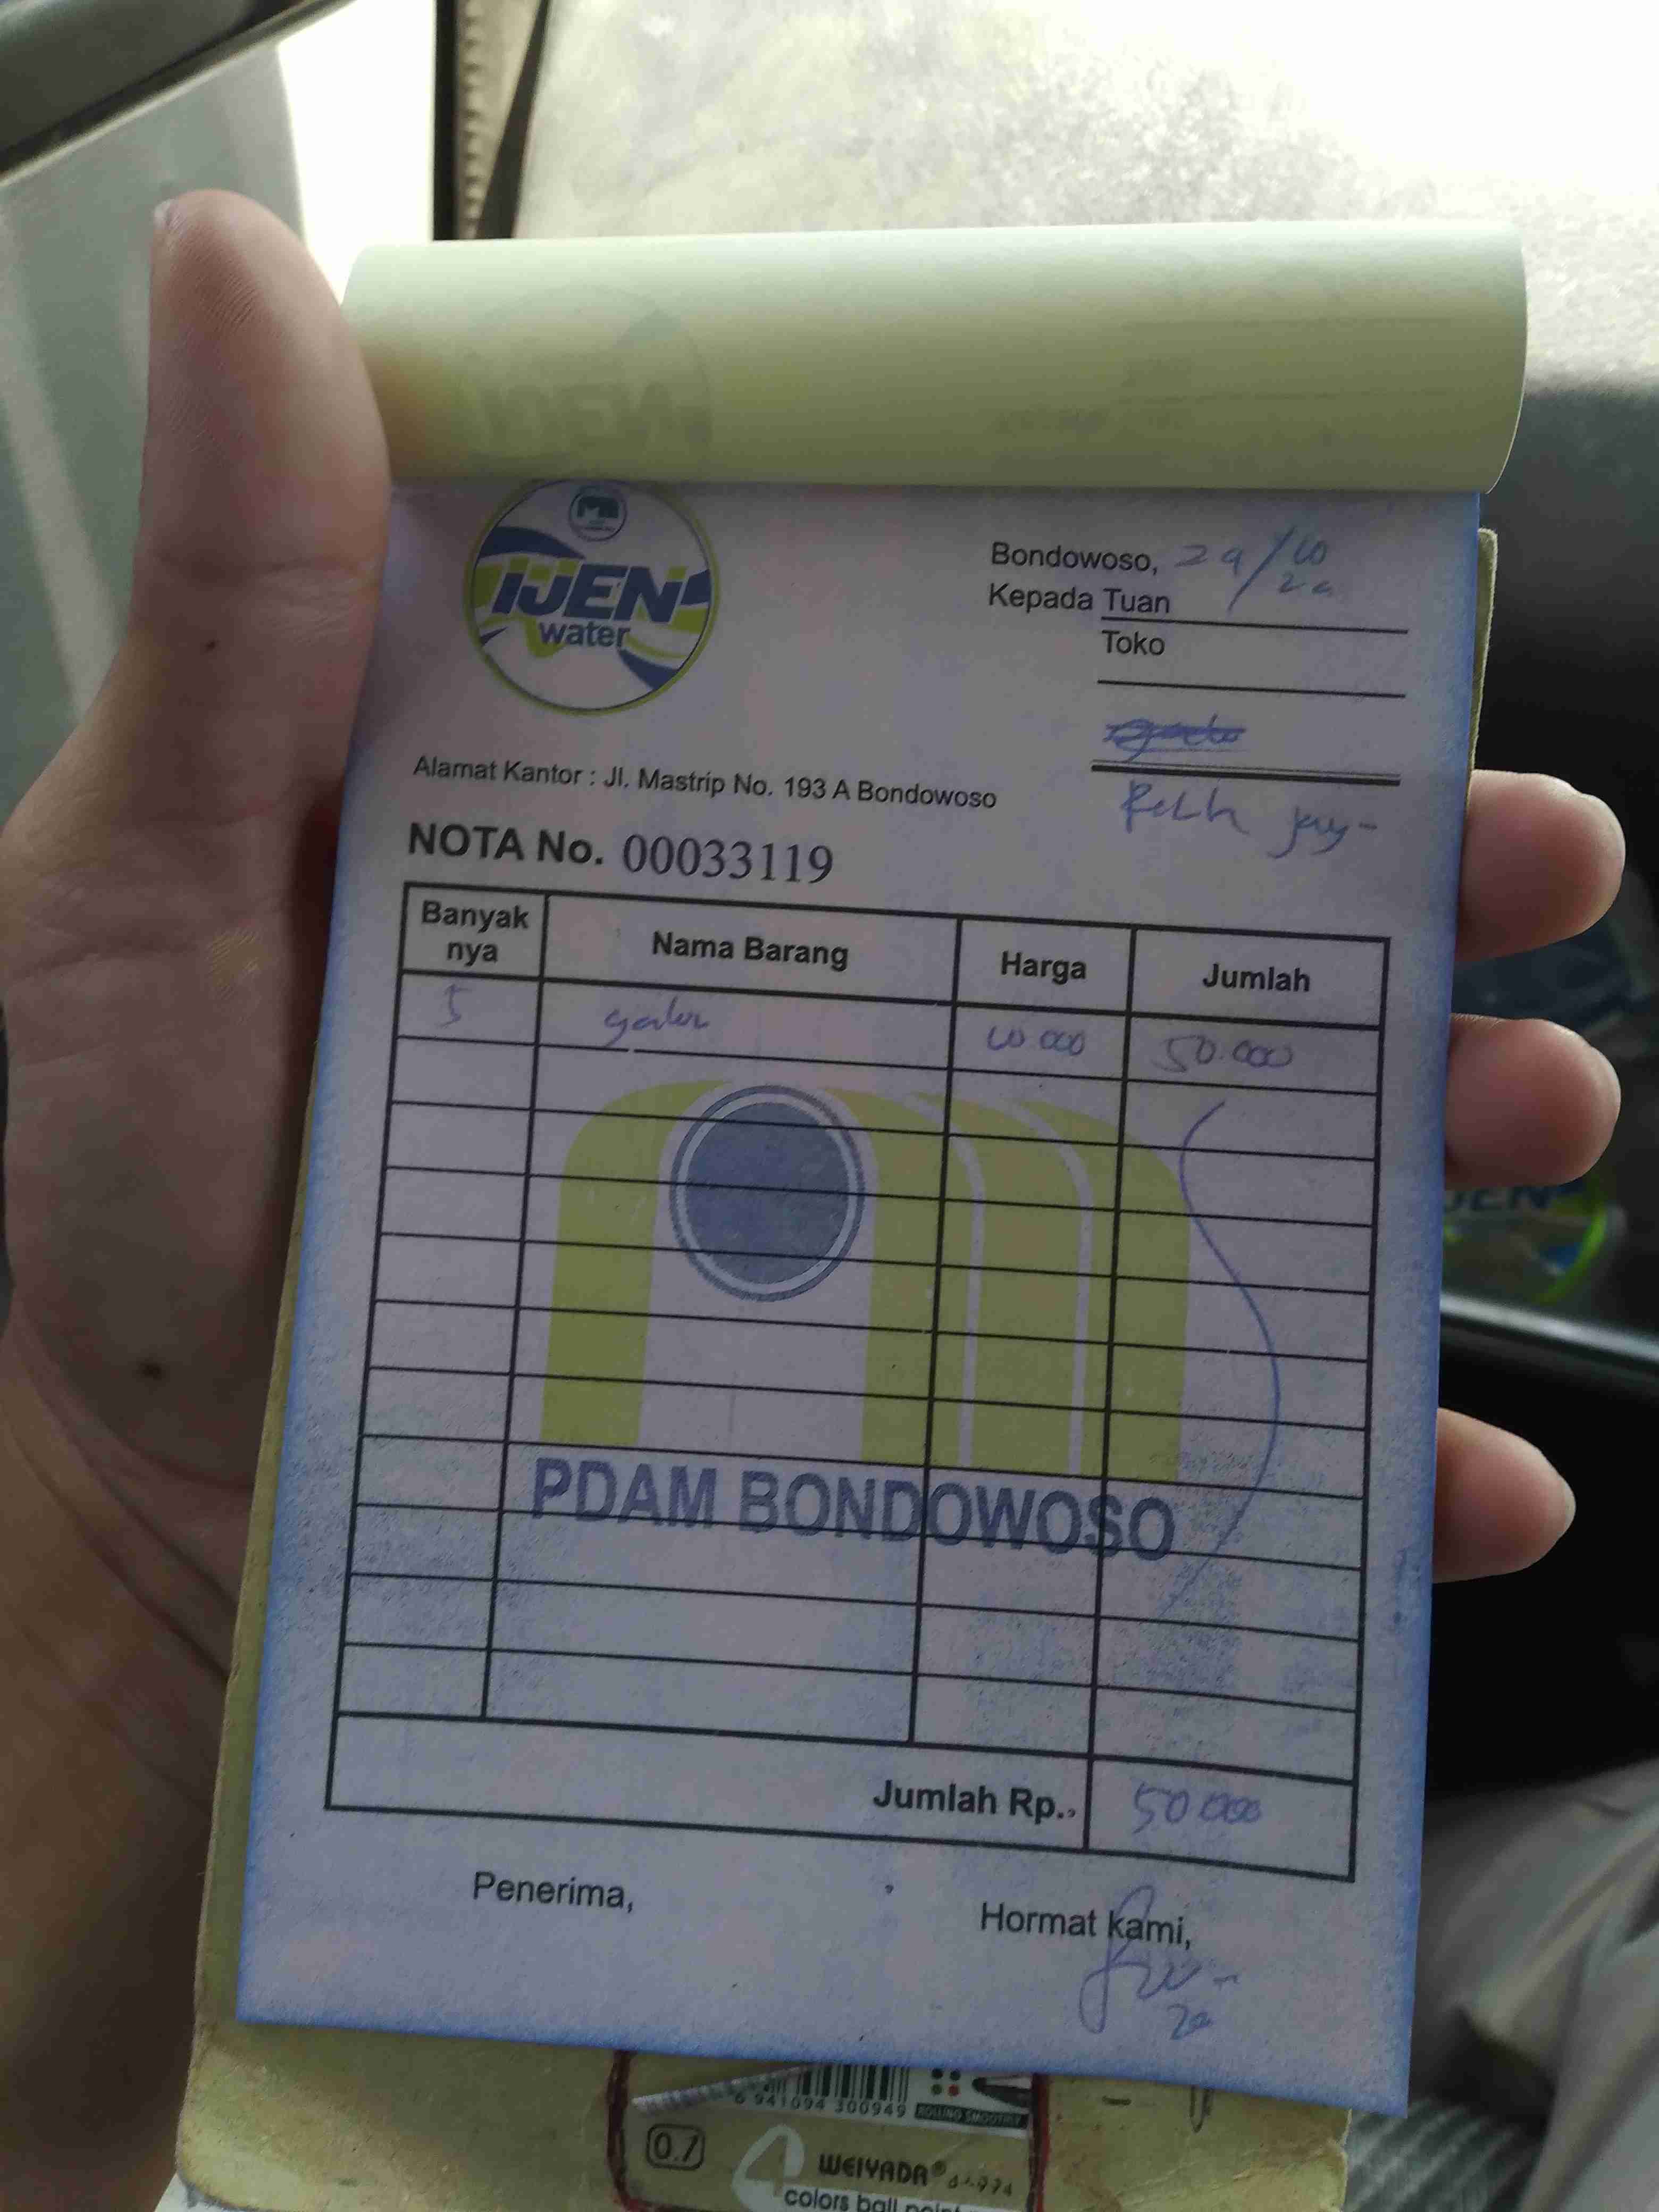 IJEN
water
Bondowoso, 29/10
Kepada Tuan
Toko
Alamat Kantor : Jl. Mastrip No. 193 A Bondowoso
NOTA No. 00033119
Banyak nya Nama Barang Harga Jumlah
5 galon 10 000 50.000
PDAM BONDOWOSO
Jumlah Rp., 50 000
Penerima,
Hormat kami,
IJEN
6 941094 300949
ROLLING SMOOTHLY
0.7
WEIYADA®
colors ball point